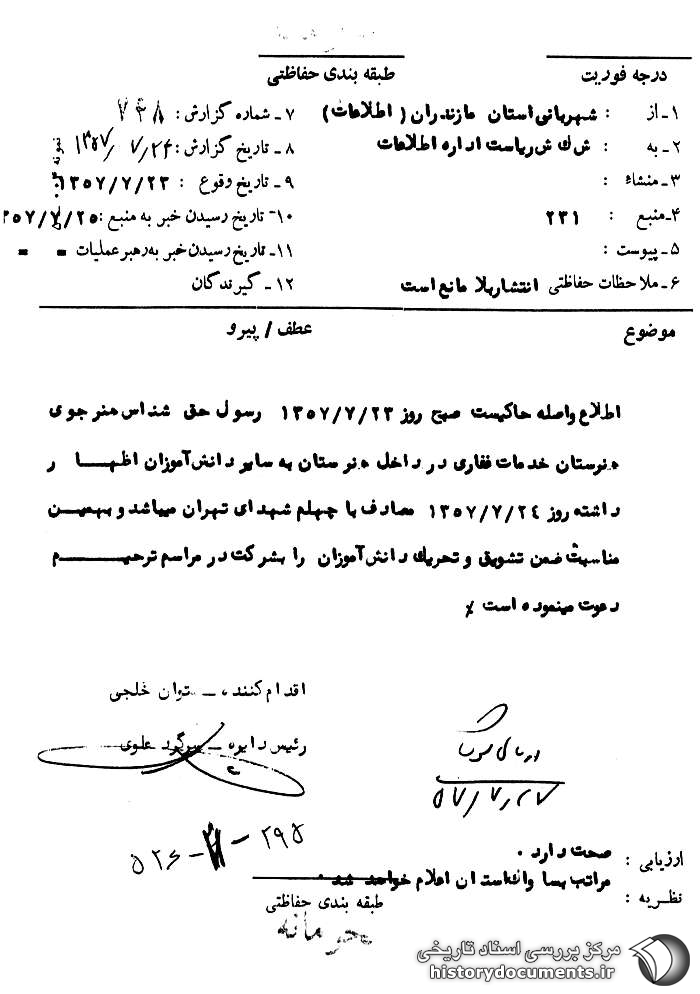 درجه فوریت
طبقه بندی حفاظتی
۱ـ از : شهربانی استان مازندران ( اطلاعات )
۷ ـ شماره گزارش :
۲ـ به : ش ك ش ریاست اداره اطلاعات
۸ ـ تاریخ گزارش : ۱۳۵۷/۷/۲۴
۳ـ منشاء :
۹ ـ تاریخ وقوع : ۱۳۵۷/۷/۲۳
۴ـ منبع : ۲۳۱
۱۰ـ تاریخ رسیدن خبر به منبع : ۳۵۷/۷/۲۵
۵ ـ پیوست :
۱۱ ـ تاریخ رسیدن خبر به رهبر عملیات = =
۶ ـ ملاحظات حفاظتی انتشار بلا مانع است
۱۲ ـ گیرندگان
موضوع
عطف / پیرو
اطلاع واصله حاکیست صبح روز ۱۳۵۷/۷/۲۳ رسول حق شناس هنرجوی
هنرستان خدمات غفاری در داخل هنرستان به سایر دانش‌آموزان اظهـــار
داشته روز ۱۳۵۷/۷/۲٤ مصادف با چهلم شهدای تهران میباشد و بهمیـــن
مناسبت ضمن تشویق و تحریك دانش‌آموزان را بشرکت در مراسم ترحیـــــم
دعوت مینموده است ٪
اقدام کننده ـ ستوان خلجی
رئیس دایره ـ سرگرد علوی
۵۷/۷/۲۷
۲۹۵ -
ارزیابی : صحت دارد .
مراتب بساواك استان اعلام خواهد شد .
نظریه :
طبقه بندی حفاظتی
محرمانه
مرکز بررسی اسناد تاریخی
historydocuments.ir